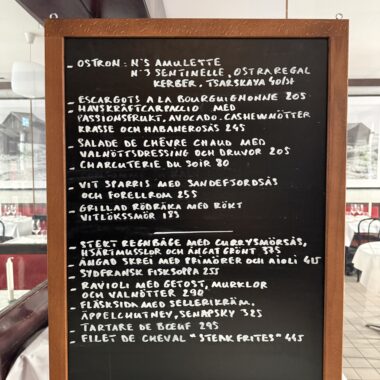 - OSTRON: N°5 AMULETTE
N°3 SENTINELLE, OSTRA REGAL
KERBER, TSARSKAYA 40/ST
- ESCARGOTS A LA BOURGUIGNONNE 205
- HAVSKRÄFTCARPACCIO MED
PASSIONSFRUKT, AVOCADO, CASHEWNÖTTER
KRASSE OCH HABANEROSÅS 245
- SALADE DE CHÈVRE CHAUD MED
VALNÖTTSDRESSING OCH DRUVOR 205
- CHARCUTERIE DU SOIR 80
- VIT SPARRIS MED SANDEFJORDSÅS
OCH FORELLROM 255
- GRILLAD RÖDRÄKA MED RÖKT
VITLÖKSSMÖR 185
- STEKT REGNBÅGE MED CURRYSMÖRSÅS,
HJÄRTMUSSLOR OCH ÄNGAT GRÖNT 375
- ÅNGAD SKREI MED PRIMÖRER OCH AIOLI 415
- SYDFRANSK FISKSOPPA 255
- RAVIOLI MED GETOST, MURKLOR
OCH VALNÖTER 290
- FLÄSKSIDA MED SELLERIKRÄM,
ÄPPELCHUTNEY, SENAPSKY 325
- TARTARE DE BŒUF 295
- FILET DE CHEVAL "STEAK FRITES" 445